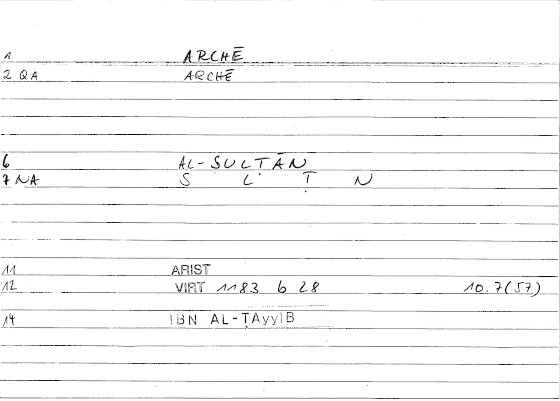 1 ARCHĒ
2 QA ARCHĒ
6 AL-SULṬĀN
7 NA S L Ṭ N
11 ARIST
12 VIRT 1183 b 28 10.7(57)
14 IBN AL-ṬAyyIB